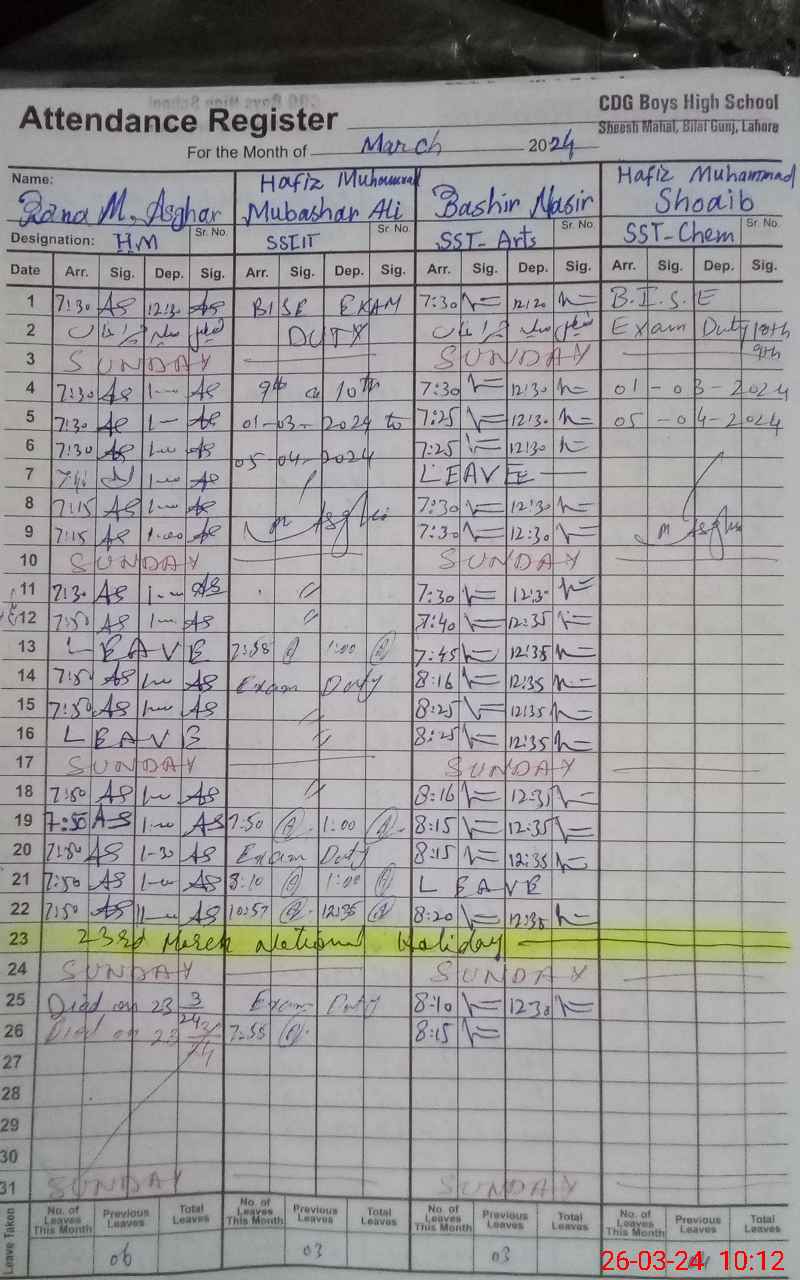 Attendance Register
CDG Boys High School
Sheesh Mahal, Bilal Gunj, Lahore
For the Month of March 2024
Name: Rana M. Asghar Hafiz Muhammad Mubashar Ali Bashir Nasir Hafiz Muhammad Shoaib
Designation: HM Sr. No. SSTIT Sr. No. SST-Arts Sr. No. SST-Chem Sr. No.
Date Arr. Sig. Dep. Sig. Arr. Sig. Dep. Sig. Arr. Sig. Dep. Sig. Arr. Sig. Dep. Sig.
1 7:30 AS 12:30 AS BISE EXAM 7:30 12:20 B.I.S.E
2 DUTY Exam Duty 10th
3 SUNDAY SUNDAY 9th
4 7:30 AS AS 9th 10th 7:30 12:30 01-03-2024
5 7:30 AS AS 01-03-2024 to 7:25 12:30 05-04-2024
6 7:30 AS AS 05-04-2024 7:25 12:30
7 AS LEAVE
8 7:15 AS AS 7:30 12:30
9 7:15 AS 1:00 AS M Asghar 7:30 12:30 M Asghar
10 SUNDAY SUNDAY
11 7:30 AS AS 7:30 12:30
12 7:50 AS AS 7:40 12:35
13 LEAVE 7:58 1:00 7:45 12:35
14 7:50 AS AS Exam Duty 8:16 12:35
15 7:50 AS AS 8:25 12:35
16 LEAVE 8:25 12:35
17 SUNDAY SUNDAY
18 7:50 AS AS 8:16 12:35
19 7:50 AS 1:00 AS 7:50 1:00 8:15 12:35
20 7:50 AS 1-30 AS Exam Duty 8:15 12:35
21 7:50 AS AS 8:10 1:00 LEAVE
22 7:50 AS AS 10:57 12:35 8:20 12:35
23 23rd March National Holiday
24 SUNDAY SUNDAY
25 Died on 23 3/24 Exam Duty 8:10 12:30
26 Died on 23 3/24 7:55 8:15
27
28
29
30
31 SUNDAY SUNDAY
Leave Taken No. of Leaves This Month Previous Leaves Total Leaves No. of Leaves This Month Previous Leaves Total Leaves No. of Leaves This Month Previous Leaves Total Leaves No. of Leaves This Month Previous Leaves Total Leaves
06 03 03
26-03-24 10:12